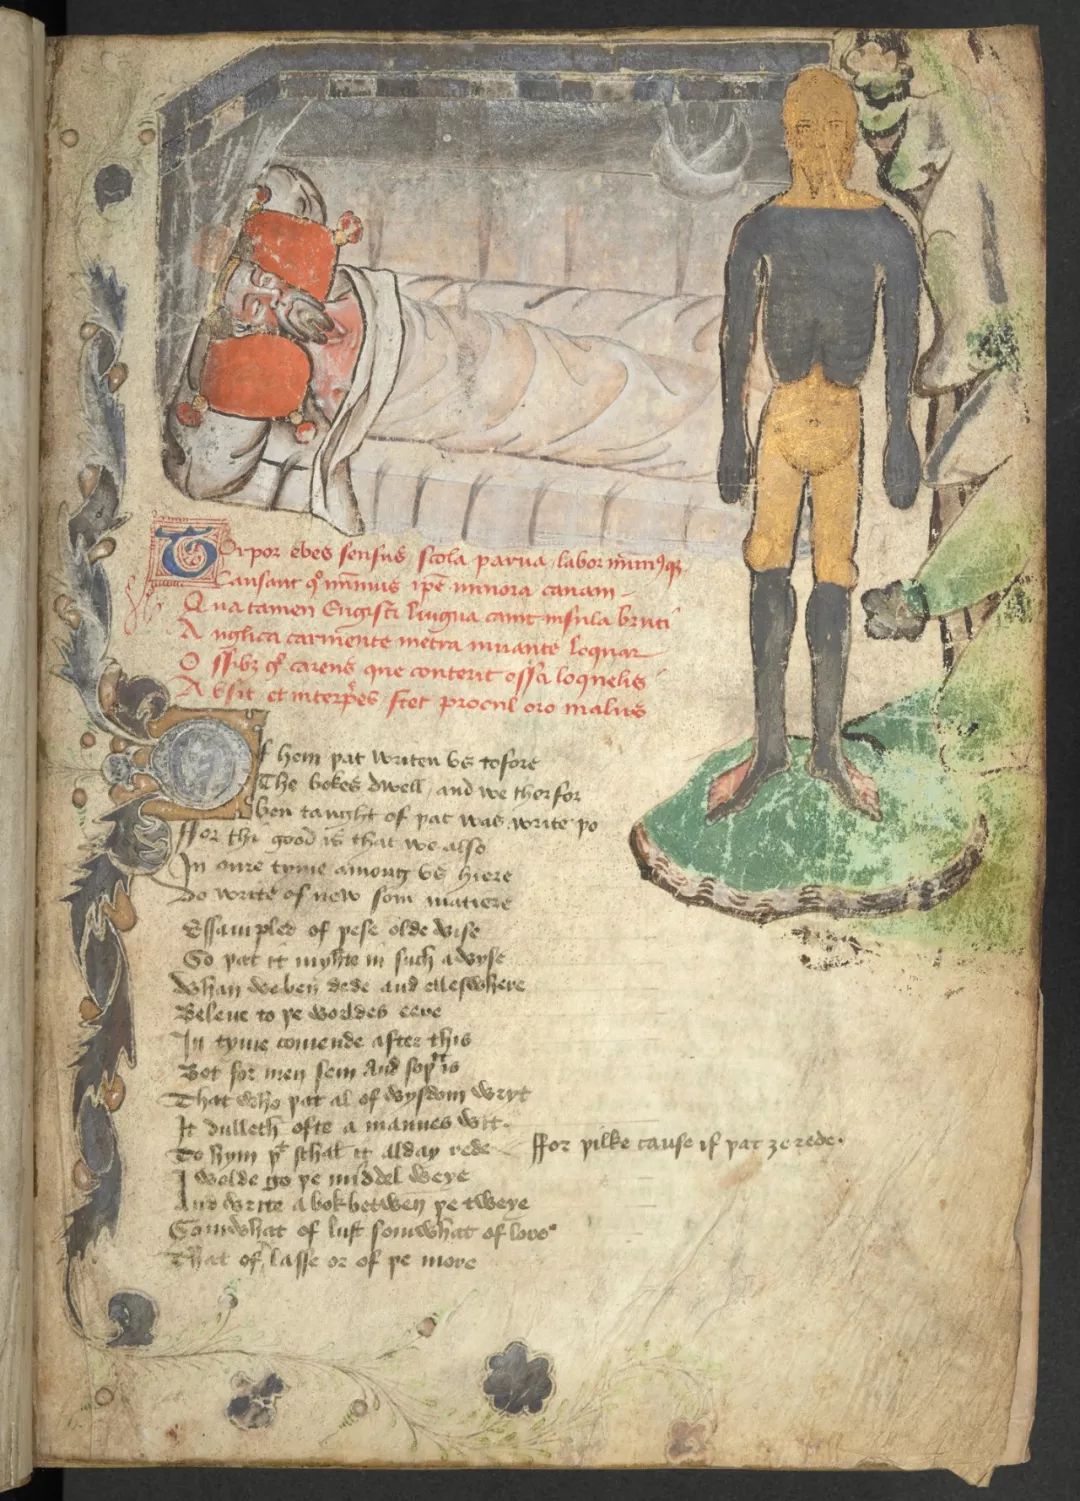 Torpor ebes sensus scola parua labor minimusqȝ
Causant qͦ minimus ipē minora canam
Qua tamen Engisti lingua canit insula bruti
Anglica carmente metra iuuante loquar
Ossibȝ gͦ carens que conterit ossa loquelis
Absit et interpͤs stet procul oro malus
Of hem þat writen vs tofore
The bokes dwell and we therfor
Ben taught of þat was write þo
ffor thi good is that we also
In oure tyme among vs hiere
Do write of new som matiere
Essampled of þese olde wise
So þat it myhte in such a wyse
Whan we ben dede and elleswhere
Beleue to þe worldes eere
In tyme comende after this
Bot for men sein And soþ it is
That who þat al of wysdom wryt
It dulleth ofte a mannes wit
To hym þͭ schal it alday rede
ffor þilke cause if þat ȝe rede
I wolde go þe middel weye
And write a bok betwen þe tweye
Somwhat of lust somwhat of lore
That of lasse or of þe more